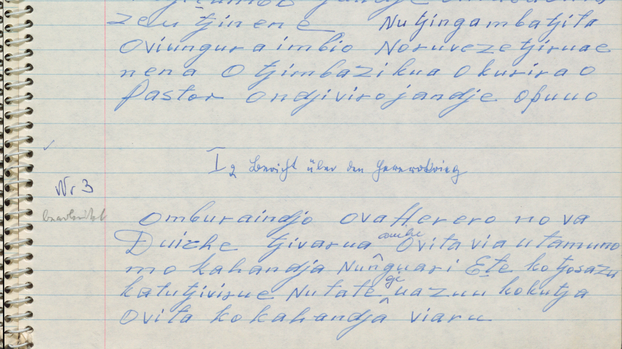 zeu tjinene Nutjingambatjita
Oviungura imbio Noruvezetjiruae
nena Otjimbazikua Okurirao
Pastor Ondjivirojandje opuuo
I2 Bericht über den Hererokrieg
Nr 3
bearbeitet
Omburaindjo ovaHerero nova
Duizhe tjivarua ouike Ovita via utamuno
mo kahandja Nunguari Ete kotjosazu
katutjivirue Nutate ge uazuu kokutja
Ovita kokahandja viaru